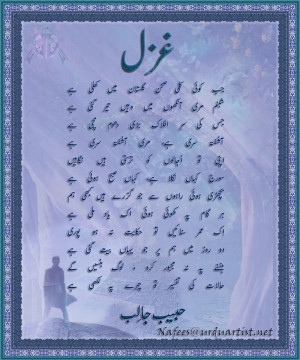 غزل
جب کوئی کلی صحن گلستاں میں کھلی ہے
شبنم مری آنکھوں میں وہیں تیر گئی ہے
جس کی سر افلاک بڑی دھوم مچی ہے
آشفتہ سری ہے، مری آشفتہ سری ہے
اپنی تو اجالوں کو ترستی ہیں نگاہیں
سورج کہاں نکلا ہے، کہاں صبح ہوئی ہے
بچھڑی ہوئی راہوں سے جو گزرے ہیں کبھی ہم
ہر گام پہ کھوئی ہوئی اک یاد ملی ہے
اک عمر سنائیں تو حکایت نہ ہو پوری
دو روز میں ہم پر جو یہاں بیت گئی ہے
ہنسنے پہ نہ مجبور کرو، لوگ ہنسیں گے
حالات کی تفسیر تو چہرے پہ لکھی ہے
حبیب جالب
Nafees@urduartist.net